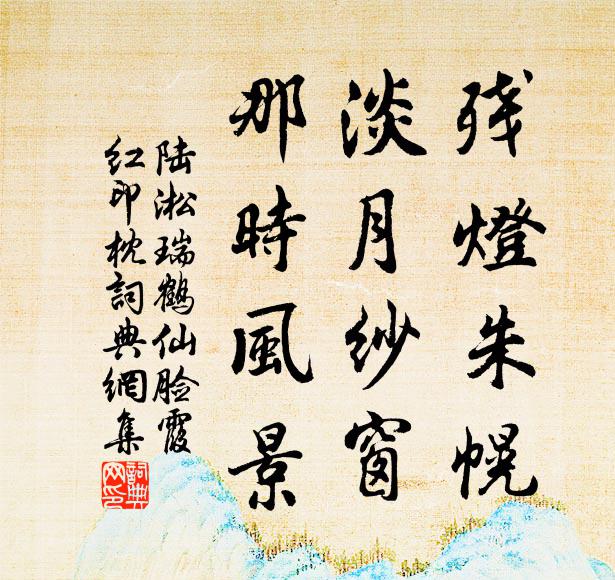 残燈朱幌
淡月纱窗
那時風景
陆淞瑞鶴仙脸霞
红印枕詞典網集
詞典
网印